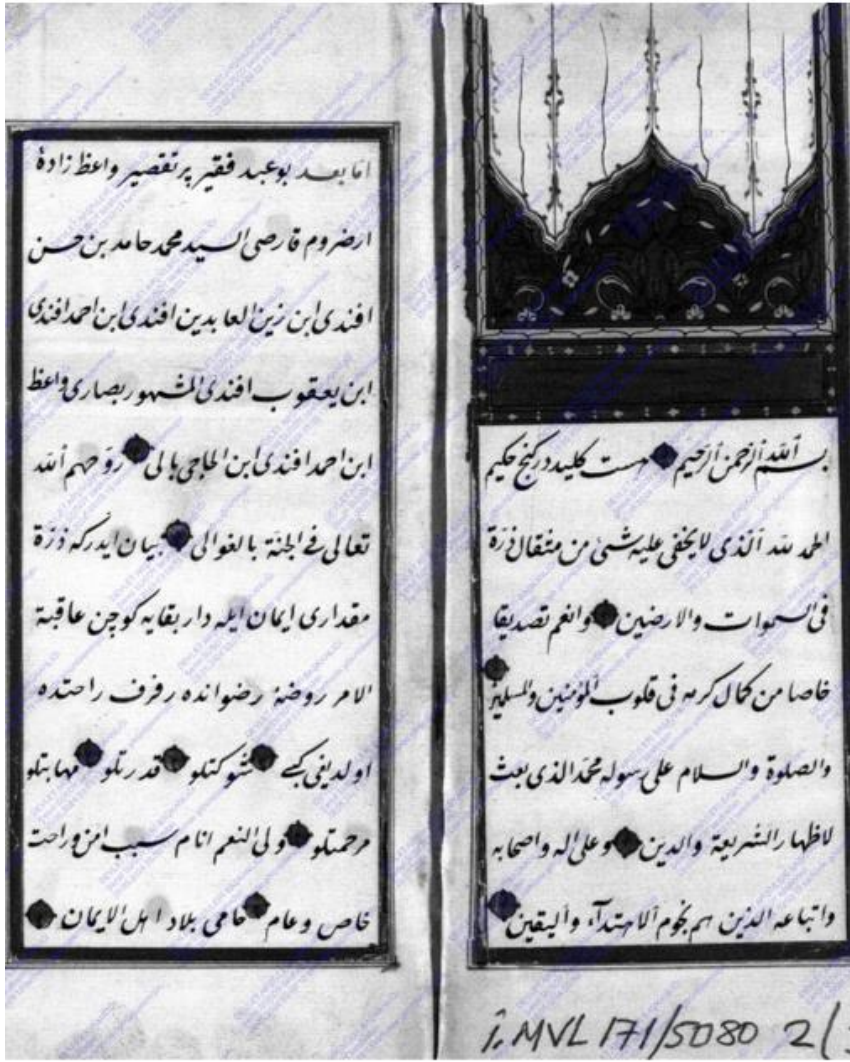 بسم الله الرحمن الرحیم هست کلید در کنج حکیم
الحمد لله الذی لا یخفی علیه شئ من مثقال ذرة
فی السموات والارضین وانعم تصدیقا
خاصا من کمال کرمه فی قلوب المؤمنین والمسلمین
والصلوة والسلام علی رسوله محمد الذی بعث
لاظهار الشریعة والدین وعلی اله واصحابه
واتباعه الذین هم نجوم الاهتدآء والیقین
اما بعد بو عبد فقیر پر تقصیر واعظ زادهٔ
ارضروم قارصی السید محمد حامد بن حسن
افندی ابن زین العابدین افندی ابن احمد افندی
ابن یعقوب افندی المشهور بصاری واعظ
ابن احمد افندی ابن الحاجی بالی روّحهم الله
تعالی فی الجنة بالغوالی بیان ایدرکه ذرّة
مقداری ایمان ایله دار بقایه کوچن عاقبة
الامر روضهٔ رضوانده رفرف راحتده
اولدیغی کبی شوکتلو قدرتلو مهابتلو
مرحمتلو ولی النعم انام سبب امن وراحت
خاص وعام حامی بلاد اهل الایمان
İ.MVL 171/5080 2/